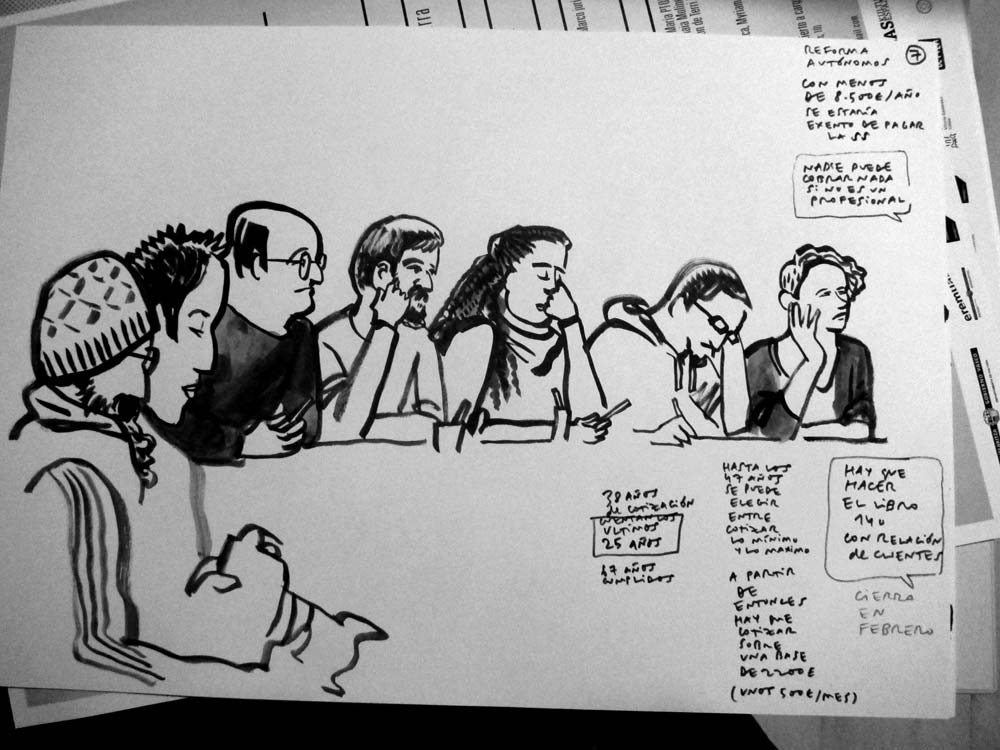 REFORMA
AUTÓNOMOS
7
CON MENOS
DE 8.500€/AÑO
SE ESTARÍA
EXENTO DE PAGAR
LA SS
NADIE PUEDE
COBRAR NADA
SI NO ES UN
PROFESIONAL
38 AÑOS
de COTIZACIÓN
CUENTAN LOS
ULTIMOS
25 AÑOS
47 AÑOS
CUMPLIDOS
HASTA LOS
47 AÑOS
SE PUEDE
ELEGIR
ENTRE
COTIZAR
LO MÍNIMO
Y LO MAXIMO
A PARTIR
DE
ENTONCES
HAY QUE
COTIZAR
SOBRE
UNA BASE
DE 2200€
(UNOS 500€/MES)
HAY QUE
HACER
EL LIBRO
140
CON RELACIÓN
de CLIENTES
CIERRA
EN
FEBRERO